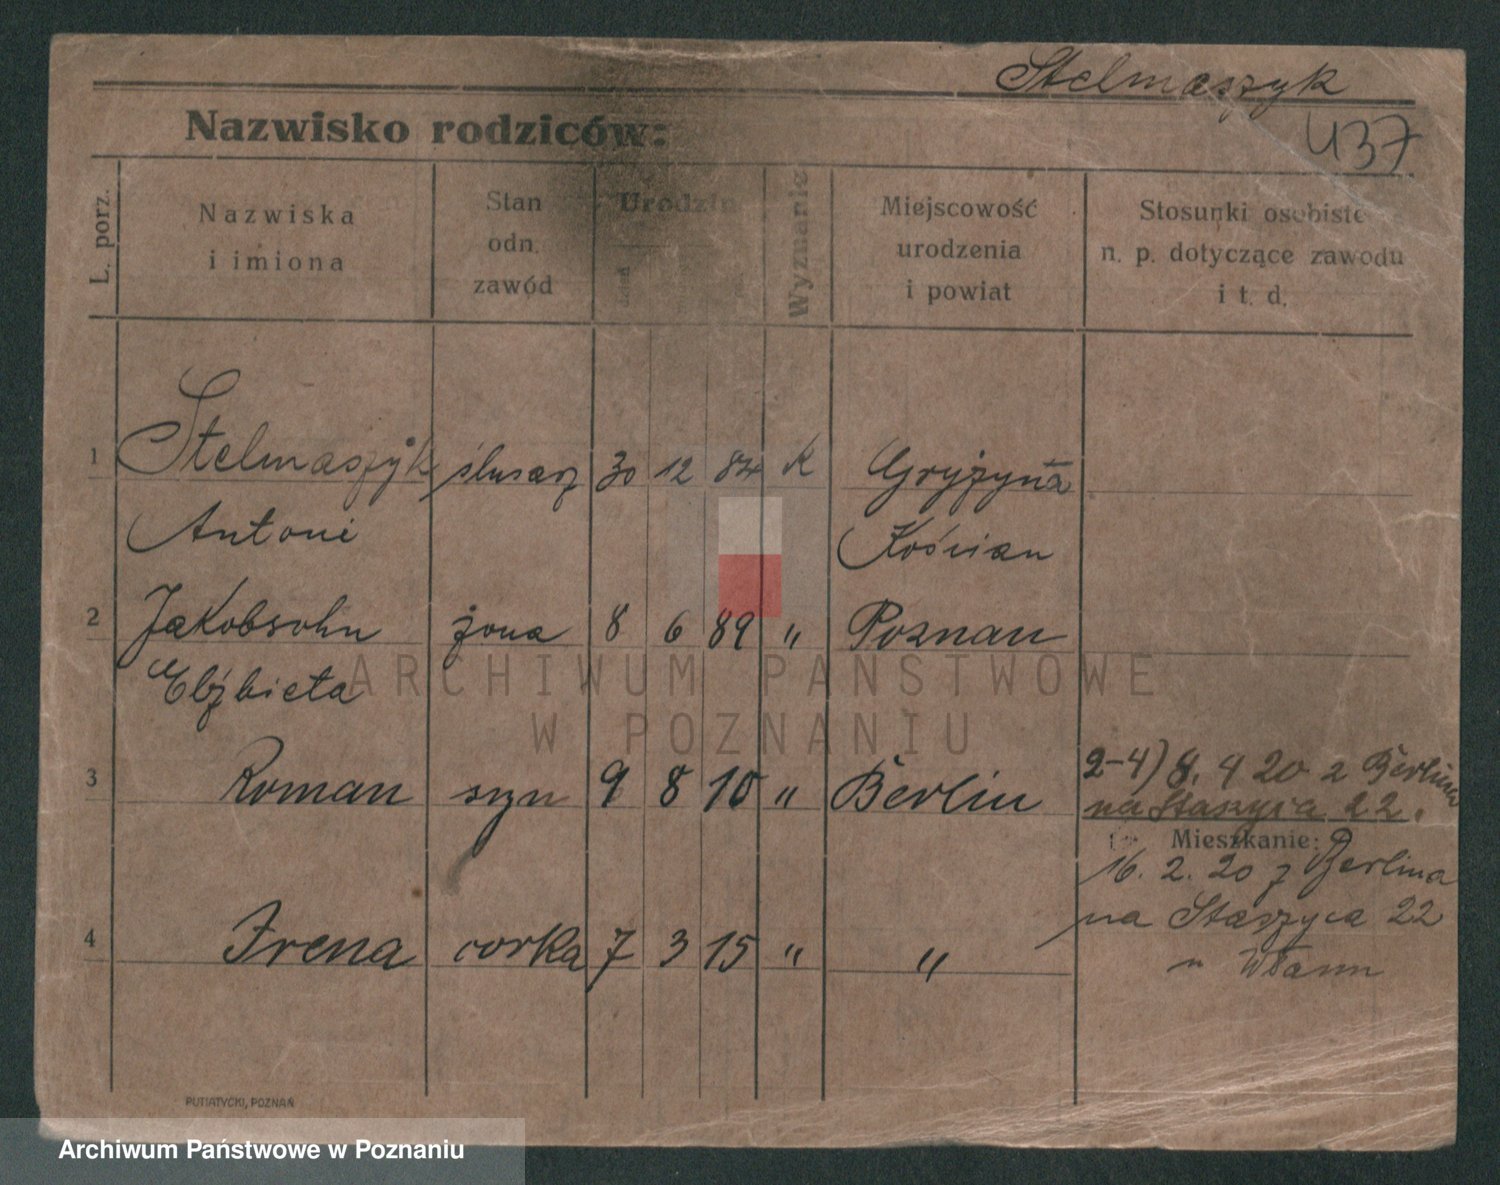 Stelmaszyk
Nazwisko rodziców:
437
L. porz.
Nazwiska
i imiona
Stan
odn.
zawód
Urodzin
dzień
Wyznanie
Miejscowość
urodzenia
i powiat
Stosunki osobiste
n. p. dotyczące zawodu
i t. d.
1 Stelmaszyk ślusarz 30 12 84 K Gryżyna
Antoni Kościan
2 Jakobsohn żona 8 6 89 " Poznan
Elżbieta
ARCHIWUM PAŃSTWOWE
W POZNANIU
3 Roman syn 9 8 10 " Berlin
2-4) 8. 4 20 z Berlina
na Staszyca 22.
Mieszkanie:
16. 2. 20 z Berlina
na Staszyca 22
4 Irena corka 7 3 15 " "
PUTIATYCKI, POZNAŃ
Archiwum Państwowe w Poznaniu